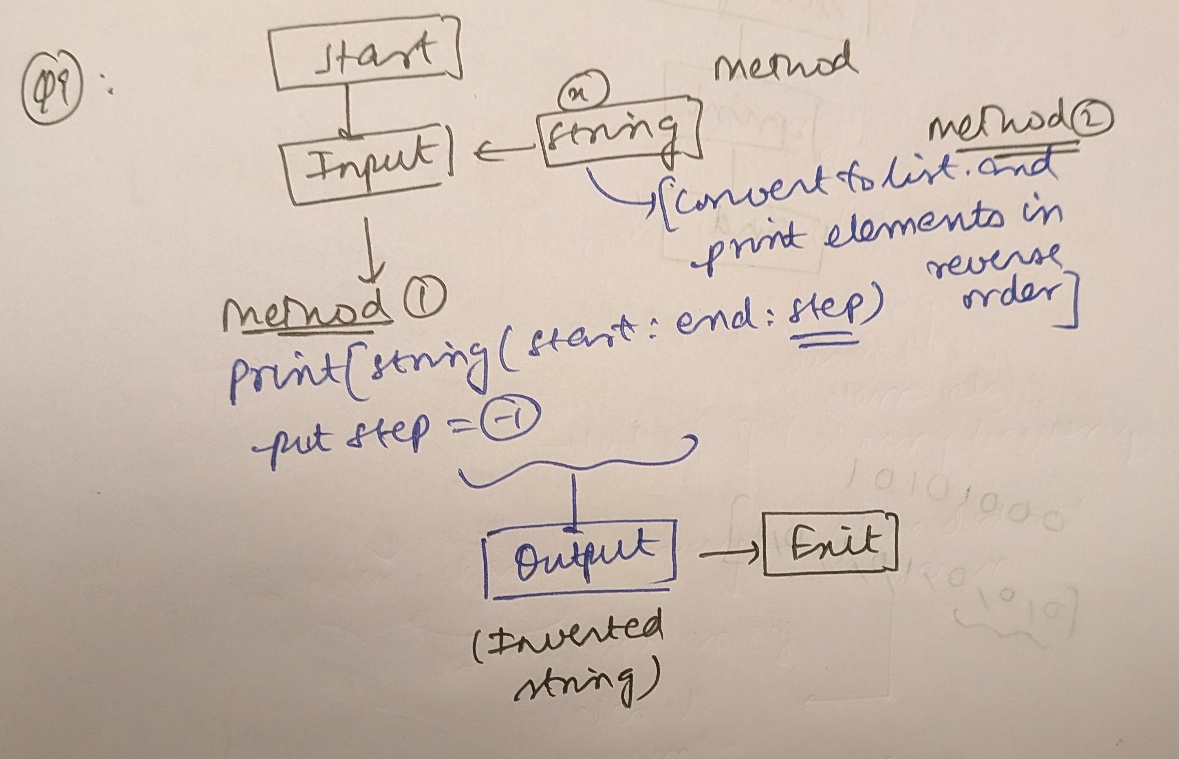 Q9:
Start
Input
x
String
method
method ②
[convert to list. and
print elements in
reverse
order]
method ①
print[string(start: end: step)
put step = -1
Output
Exit
(Inverted
string)